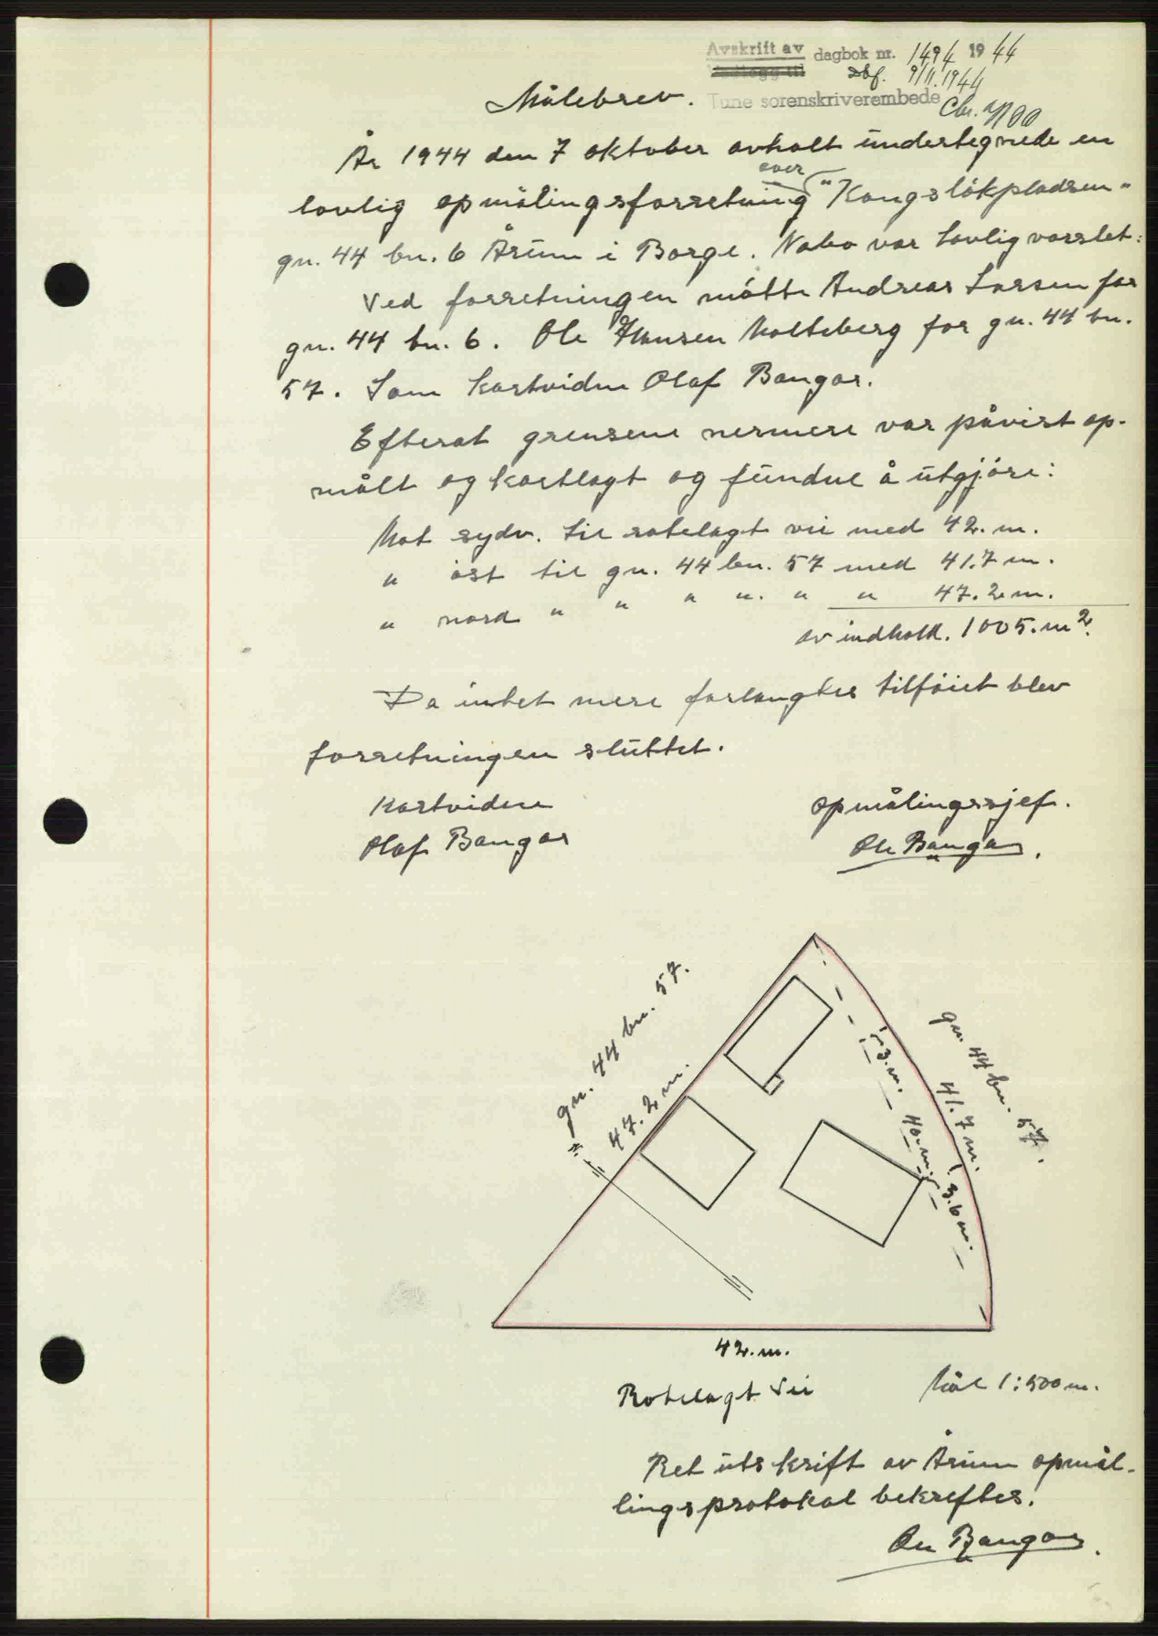 Avskrift av dagbok nr. 1494 1944
dbf. 9/11.1944
Tune sorenskriverembede
Målebrev.
År 1944 den 7 oktober avholt undertegnede en
lovlig opmålingsforretning over "Kongslökpladsen"
gn. 44 bn. 6 Årum i Borge. Nabo var lovlig varslet:
Ved forretningen mötte Andreas Larsen for
gn. 44 bn. 6. Ole Hansen Molteberg for gn. 44 bn.
57. Som kartvidne Olaf Bangar.
Efterat grensene nermere var påvist op-
målt og kartlagt og fundne å utgjöre:
Mot sydv. til rotelagt vei med 42. m.
" öst til gn. 44 bn. 57 med 41.7 m.
" nord " " " " " " 47.2 m.
av indhold. 1005. m2.
Da intet mere forlangtes tilföiet blev
forretningen sluttet.
Kartvidne
Olaf Bangar
opmålingssjef.
Ole Bangar.
gn. 44 bn. 57.
47.2 m.
gn. 44 bn. 57.
41.7 m.
3. m.
40. m.
3.6 m.
42. m.
Rotelagt Vei
Mål 1:500 m.
Ret utskrift av Årum opmål-
lingsprotokol bekreftes.
Ole Bangar.